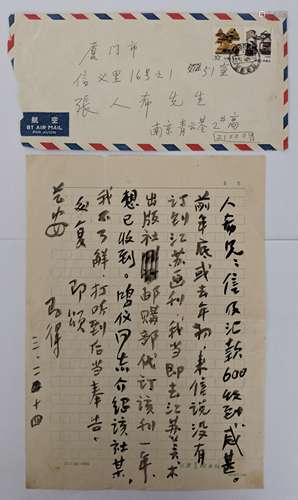 厦门市
信义里16号之1 51室
張人希先生
南京青云巷2#高
210009
航空
BY AIR MAIL
PAR AVION
人希兄：信及汇款600收到，感甚。
前年底或去年初，来信说没有
订到江苏画刊，我当即去江苏美术
出版社邮购部代订该刊一年，
想已收到。鸿仪同志介绍该社某
我不了解，打听到后当奉告。
匆复 即颂
艺安
马得
二、二十四